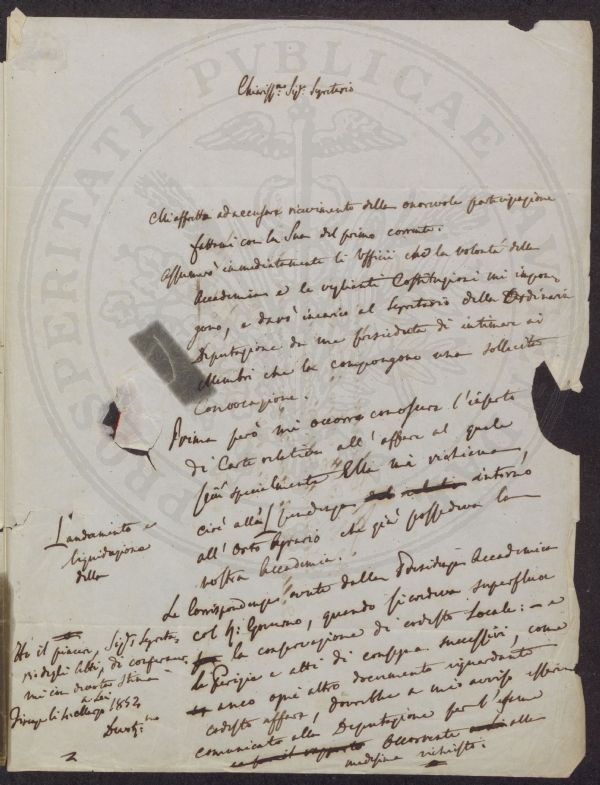 Chiariss.mo Sig.r Segretario
Mi affretto ad accusare ricevimento della onorevole partecipazione
fattami con la Sua del primo corrente.
Assumerò immediatamente li Ufficii che la volontà della
Accademia e le veglianti Costituzioni mi impon-
gono, e darò incarico al Segretario della Ordinaria
Deputazione da me presieduta di intimare ai
Membri che la compongono una sollecita
Convocazione.
Prima però mi occorre conoscere l'inserto
di Carte relative all'affare al quale
più specialmente Ella mi richiama,
cioè alla pendenza intorno
all'Orto Agrario che già possedeva la
nostra Accademia.
L'andamento e
liquidazione
della
Le Corrispondenze avute dalla Presidenza Accademica
col R. Governo, quando si credeva superflua
la conservazione di codesto Locale: - e
la Perizia e atti di consegna successivi, come
anco ogni altro documento riguardante
codesto affare, dovrebbe a mio avviso essere
comunicato alla Deputazione per l'esame
occorrente alle
medesime richieste.
Ho il piacere, Sig.r Segreta-
rio degli Atti, di confermar-
mi con devota stima
a Lei
Firenze li 1852
Dev.mo